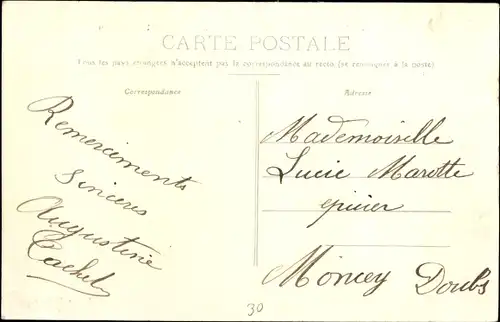 CARTE POSTALE
Tous les pays étrangers n'acceptent pas la correspondance au recto (se renseigner à la poste)
Correspondance
Adresse
Remerciments
Sincères
Augustine
Cachel
Mademoiselle
Lucie Marotte
épicier
Moncey Doubs
30